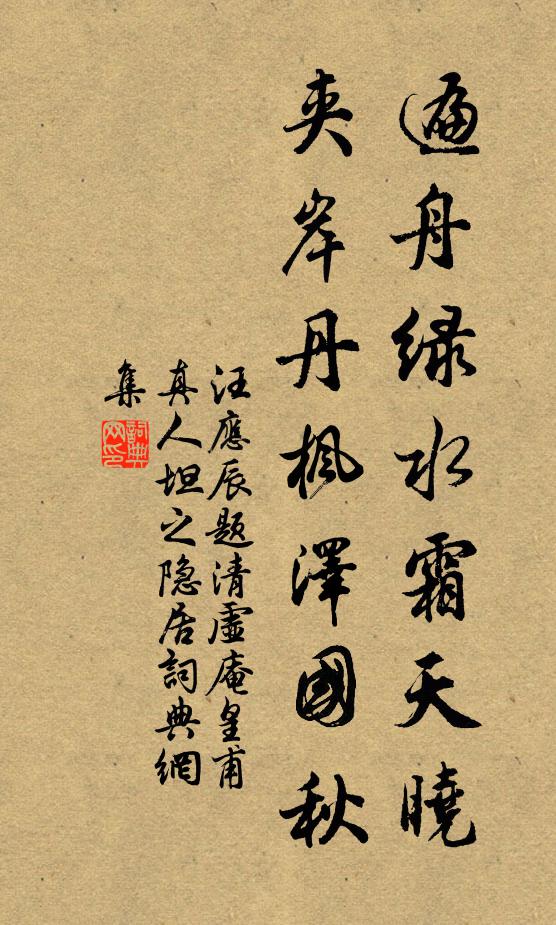 遍舟緑水霜天曉
夾岸丹楓澤國秋
汪應辰題清虛庵皇甫
真人坦之隐居詞典網
集
詞典網印